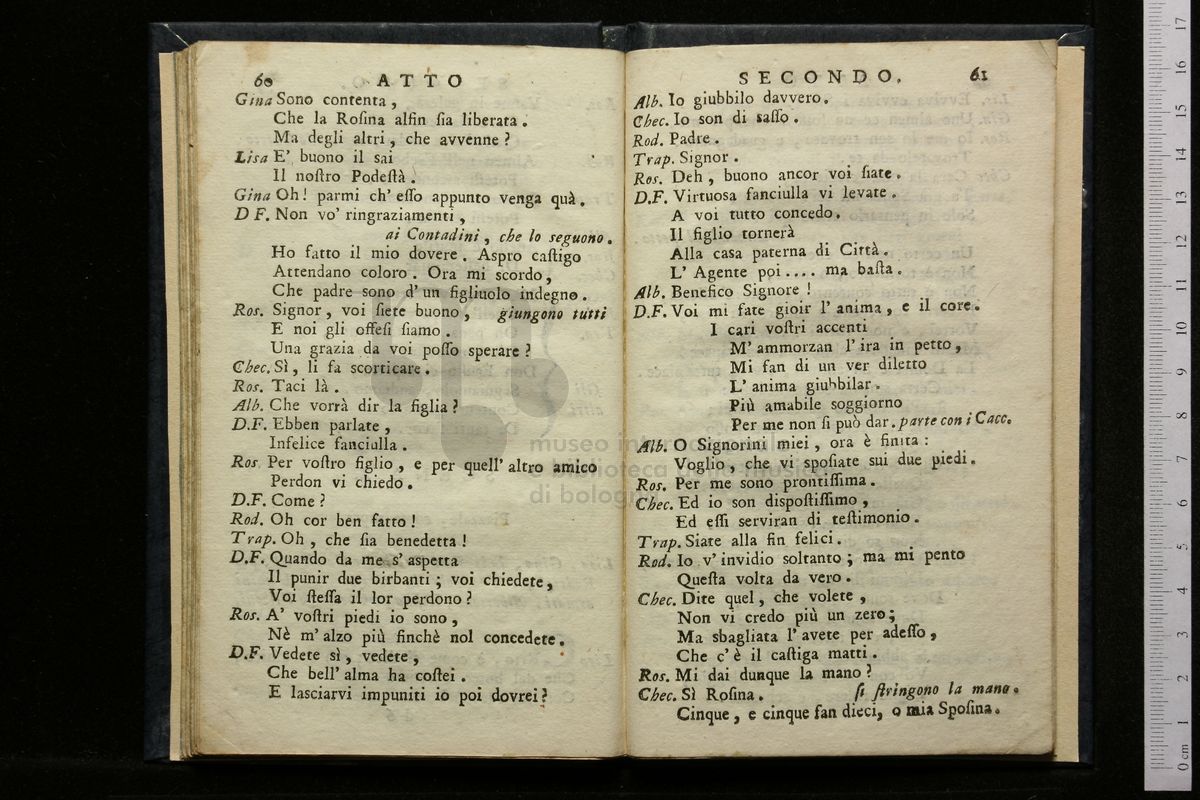 60 ATTO
Gina Sono contenta,
Che la Roſina alfin ſia liberata.
Ma degli altri, che avvenne?
Lisa E' buono il sai
Il noſtro Podeſtà.
Gina Oh! parmi ch' eſſo appunto venga quà.
D F. Non vo' ringraziamenti,
ai Contadini, che lo seguono.
Ho fatto il mio dovere. Aspro caſtigo
Attendano coloro. Ora mi scordo,
Che padre sono d' un figliuolo indegno.
Ros. Signor, voi ſiete buono, giungono tutti
E noi gli offeſi ſiamo.
Una grazia da voi poſſo sperare?
Chec. Sì, li fa scorticare.
Ros. Taci là.
Alb. Che vorrà dir la figlia?
D.F. Ebben parlate,
Infelice fanciulla.
Ros Per voſtro figlio, e per quell' altro amico
Perdon vi chiedo.
D.F. Come?
Rod. Oh cor ben fatto!
Trap. Oh, che ſia benedetta!
D.F. Quando da me s' aspetta
Il punir due birbanti; voi chiedete,
Voi ſteſſa il lor perdono?
Ros. A' voſtri piedi io sono,
Nè m' alzo più finchè nol concedete.
D.F. Vedete sì, vedete,
Che bell' alma ha coſtei.
E lasciarvi impuniti io poi dovrei?
SECONDO. 61
Alb. Io giubbilo davvero.
Chec. Io son di saſſo.
Rod. Padre.
Trap. Signor.
Ros. Deh, buono ancor voi ſiate.
D.F. Virtuosa fanciulla vi levate.
A voi tutto concedo.
Il figlio tornerà
Alla casa paterna di Città.
L' Agente poi.... ma baſta.
Alb. Benefico Signore!
D.F. Voi mi fate gioir l' anima, e il core.
I cari voſtri accenti
M' ammorzan l' ira in petto,
Mi fan di un ver diletto
L' anima giubbilar.
Più amabile soggiorno
Per me non ſi può dar. parte con i Cacc.
Alb. O Signorini miei, ora è finita:
Voglio, che vi spoſiate sui due piedi.
Ros. Per me sono prontiſſima.
Chec. Ed io son dispoſtiſſimo,
Ed eſſi serviran di teſtimonio.
Trap. Siate alla fin felici.
Rod. Io v' invidio soltanto; ma mi pento
Queſta volta da vero.
Chec. Dite quel, che volete,
Non vi credo più un zero;
Ma sbagliata l' avete per adeſſo,
Che c' è il caſtiga matti.
Ros. Mi dai dunque la mano?
Chec. Sì Roſina. ſi ſtringono la mano.
Cinque, e cinque fan dieci, o mia Spoſina.
museo internazionale
e biblioteca della musica
di bologna
0 cm 1 2 3 4 5 6 7 8 9 10 11 12 13 14 15 16 17